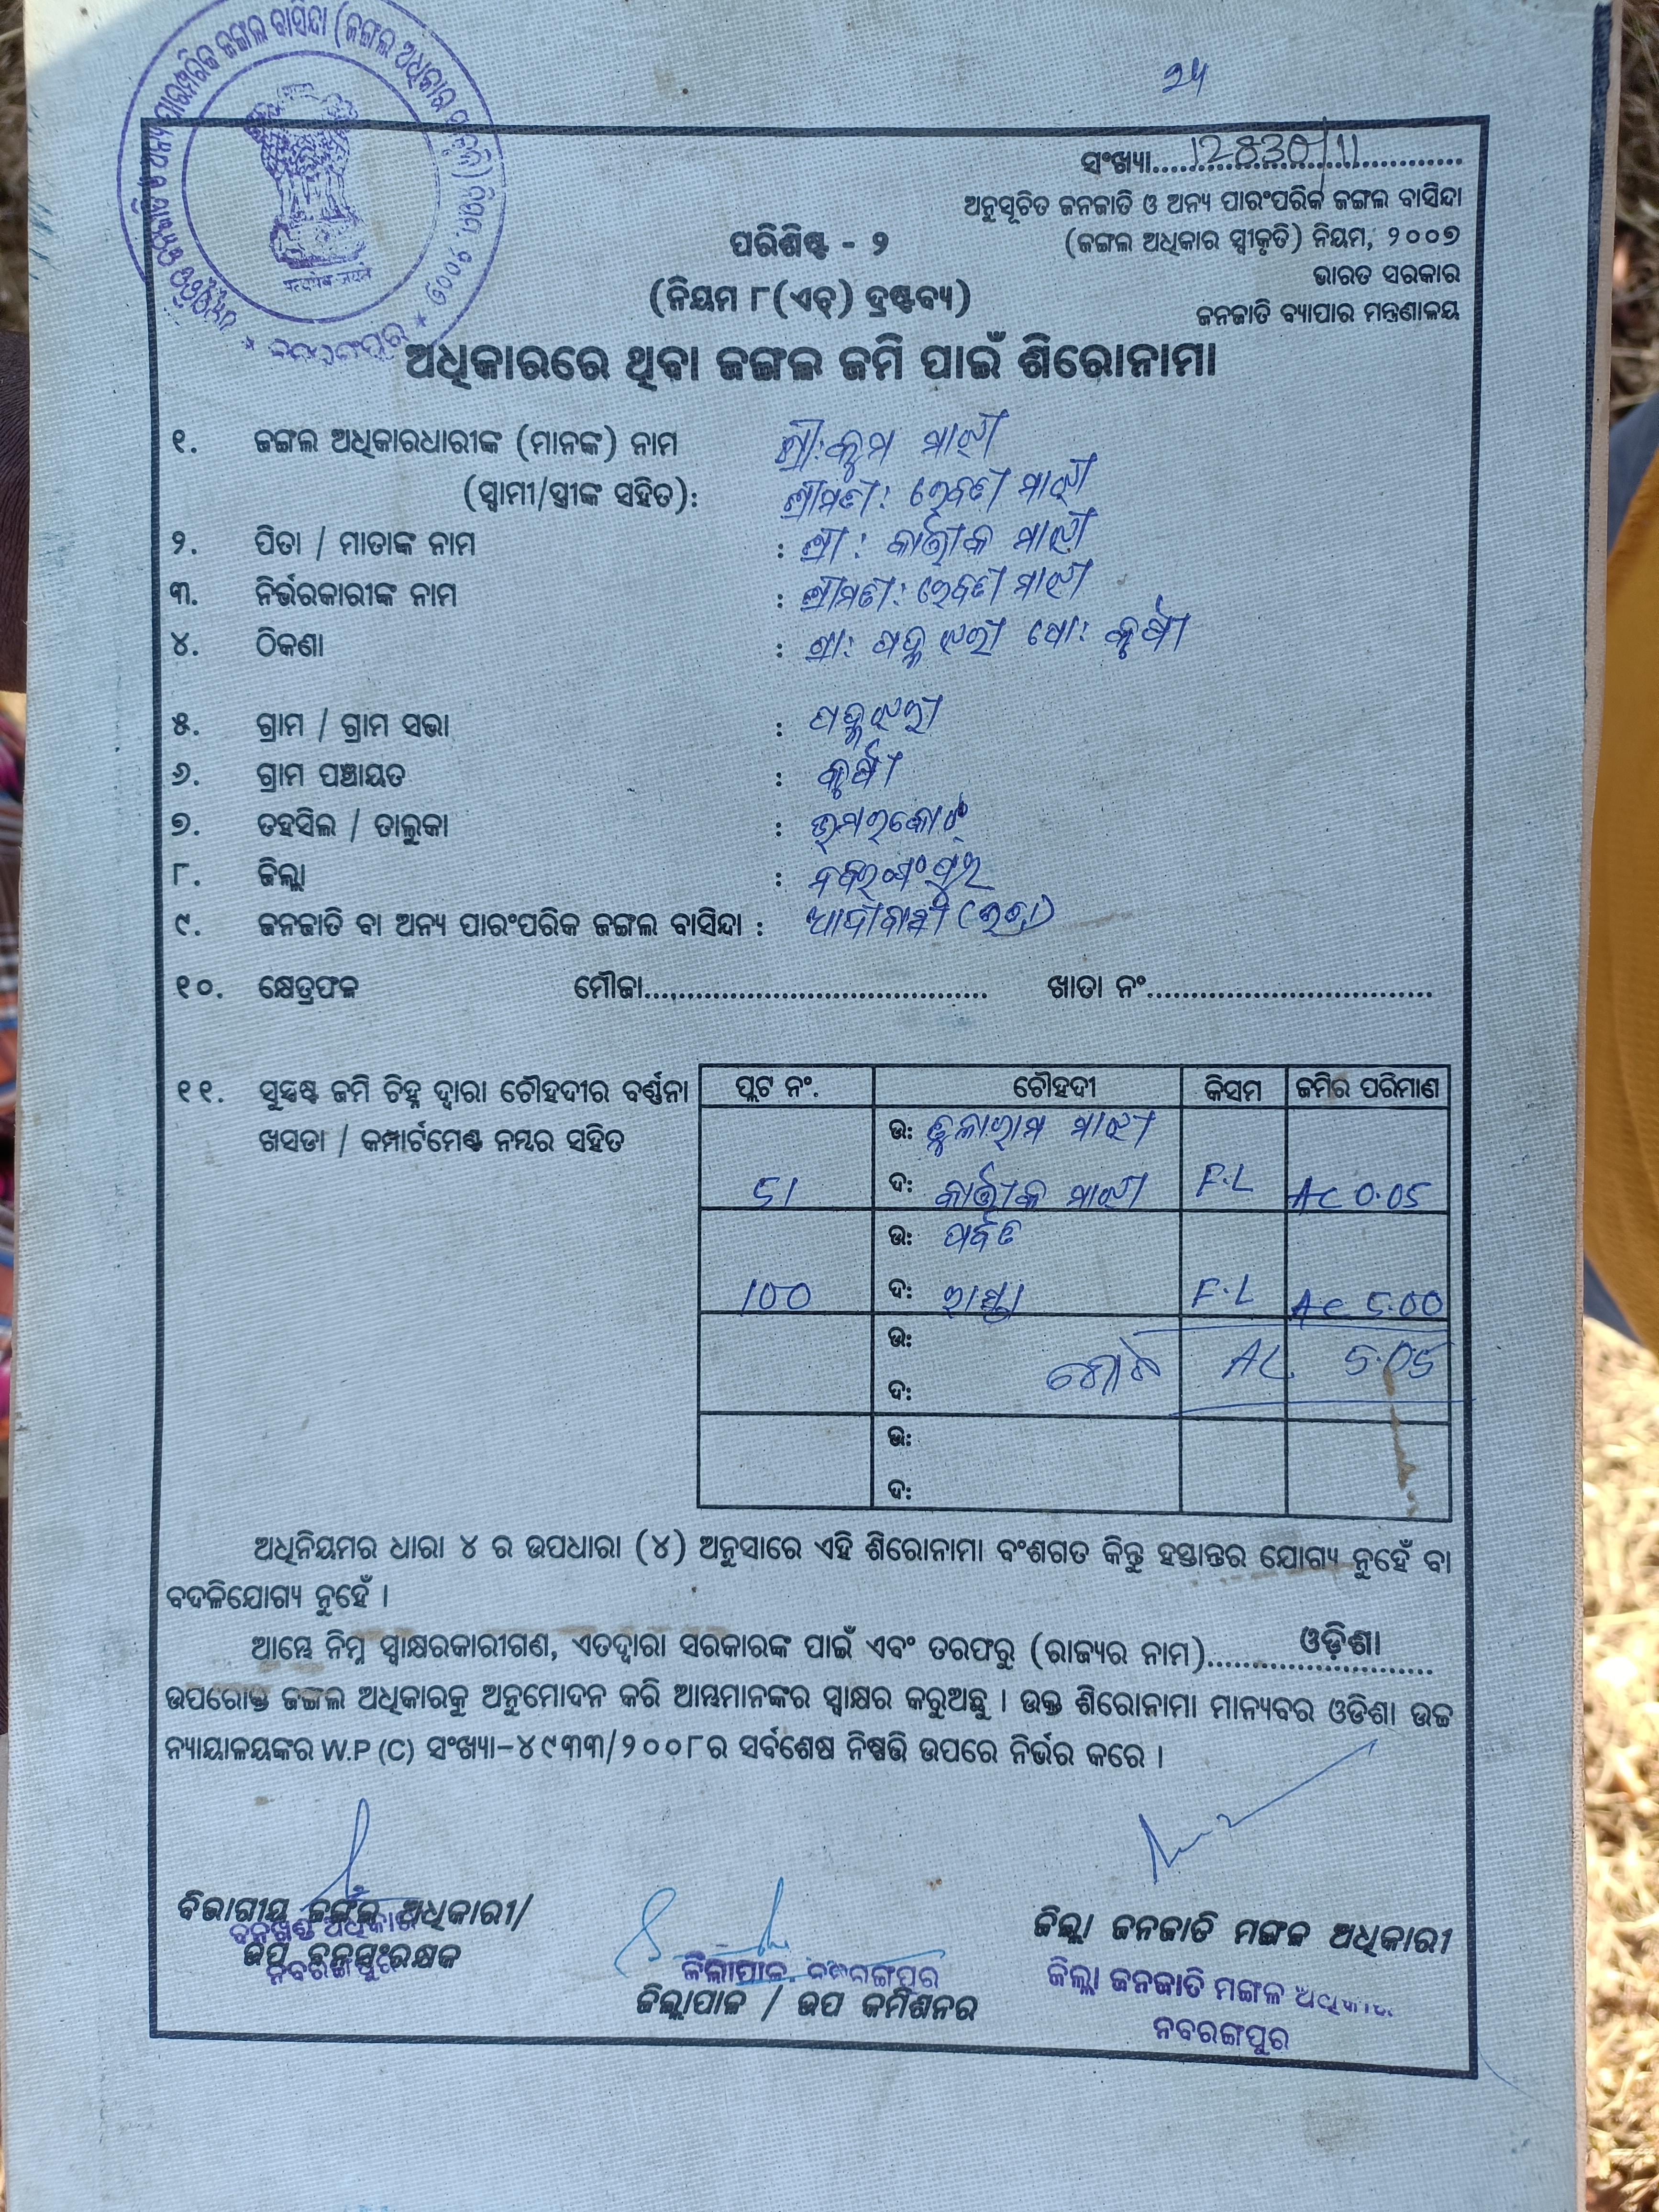 ୨୪
ସଂଖ୍ୟା 12830/11
ଅନୁସୂଚିତ ଜନଜାତି ଓ ଅନ୍ୟ ପାରଂପରିକ ଜଙ୍ଗଲ ବାସିନ୍ଦା
(ଜଙ୍ଗଲ ଅଧିକାର ସ୍ୱୀକୃତି) ନିୟମ, ୨୦୦୭
ଭାରତ ସରକାର
ଜନଜାତି ବ୍ୟାପାର ମନ୍ତ୍ରଣାଳୟ
ପରିଶିଷ୍ଟ - ୨
(ନିୟମ ୮(ଏଚ୍) ଦ୍ରଷ୍ଟବ୍ୟ)
ଅଧିକାରରେ ଥିବା ଜଙ୍ଗଲ ଜମି ପାଇଁ ଶିରୋନାମା
୧. ଜଙ୍ଗଲ ଅଧିକାରଧାରୀଙ୍କ (ମାନଙ୍କ) ନାମ ଶ୍ରୀ: ମାଝୀ
(ସ୍ୱାମୀ/ସ୍ତ୍ରୀଙ୍କ ସହିତ): ଶ୍ରୀମତୀ: ରେବତୀ ମାଝୀ
୨. ପିତା / ମାତାଙ୍କ ନାମ : ଶ୍ରୀ: କାର୍ତ୍ତୀକ ମାଝୀ
୩. ନିର୍ଭରକାରୀଙ୍କ ନାମ : ଶ୍ରୀମତୀ: ରେବତୀ ମାଝୀ
୪. ଠିକଣା : ଗ୍ରା: ପୋ:
୫. ଗ୍ରାମ / ଗ୍ରାମ ସଭା :
୬. ଗ୍ରାମ ପଞ୍ଚାୟତ :
୭. ତହସିଲ / ତାଲୁକା : ଉମରକୋଟ୍
୮. ଜିଲ୍ଲା : ନବରଂଗପୁର
୯. ଜନଜାତି ବା ଅନ୍ୟ ପାରଂପରିକ ଜଙ୍ଗଲ ବାସିନ୍ଦା : ଆଦୀବାସୀ
୧୦. କ୍ଷେତ୍ରଫଳ ମୌଜା ଖାତା ନଂ
୧୧. ସୁସ୍ପଷ୍ଟ ଜମି ଚିହ୍ନ ଦ୍ୱାରା ଚୌହଦୀର ବର୍ଣ୍ଣନା
ଖସଡା / କମ୍ପାର୍ଟମେଣ୍ଟ ନମ୍ବର ସହିତ
ପ୍ଲଟ ନଂ. ଚୌହଦୀ କିସମ ଜମିର ପରିମାଣ
ଉ: ତୁଳାରାମ ମାଝୀ
51 ଦ: କାର୍ତ୍ତୀକ ମାଝୀ F.L AC 0.05
ଉ: ପର୍ବତ
100 ଦ: ରାସ୍ତା F.L AC 5.00
ଉ:
ମୋଟ AC 5.05
ଦ:
ଉ:
ଦ:
ଅଧିନିୟମର ଧାରା ୪ ର ଉପଧାରା (୪) ଅନୁସାରେ ଏହି ଶିରୋନାମା ବଂଶଗତ କିନ୍ତୁ ହସ୍ତାନ୍ତର ଯୋଗ୍ୟ ନୁହେଁ ବା
ବଦଳିଯୋଗ୍ୟ ନୁହେଁ ।
ଆମ୍ଭେ ନିମ୍ନ ସ୍ୱାକ୍ଷରକାରୀଗଣ, ଏତଦ୍ଦ୍ୱାରା ସରକାରଙ୍କ ପାଇଁ ଏବଂ ତରଫରୁ (ରାଜ୍ୟର ନାମ) ଓଡ଼ିଶା
ଉପରୋକ୍ତ ଜଙ୍ଗଲ ଅଧିକାରକୁ ଅନୁମୋଦନ କରି ଆମ୍ଭମାନଙ୍କର ସ୍ୱାକ୍ଷର କରୁଅଛୁ । ଉକ୍ତ ଶିରୋନାମା ମାନ୍ୟବର ଓଡିଶା ଉଚ୍ଚ
ନ୍ୟାୟାଳୟଙ୍କର W.P (C) ସଂଖ୍ୟା-୪୯୩୩/୨୦୦୮ର ସର୍ବଶେଷ ନିଷ୍ପତ୍ତି ଉପରେ ନିର୍ଭର କରେ ।
ବିଭାଗୀୟ ଜଙ୍ଗଲ ଅଧିକାରୀ/
ଉପ ବନସଂରକ୍ଷକ
ନବରଙ୍ଗପୁର
ଜିଲ୍ଲାପାଳ, ନବରଙ୍ଗପୁର
ଜିଲ୍ଲାପାଳ / ଉପ କମିଶନର
ଜିଲ୍ଲା ଜନଜାତି ମଙ୍ଗଳ ଅଧିକାରୀ
ଜିଲ୍ଲା ଜନଜାତି ମଙ୍ଗଳ ଅଧିକାରୀ
ନବରଙ୍ଗପୁର